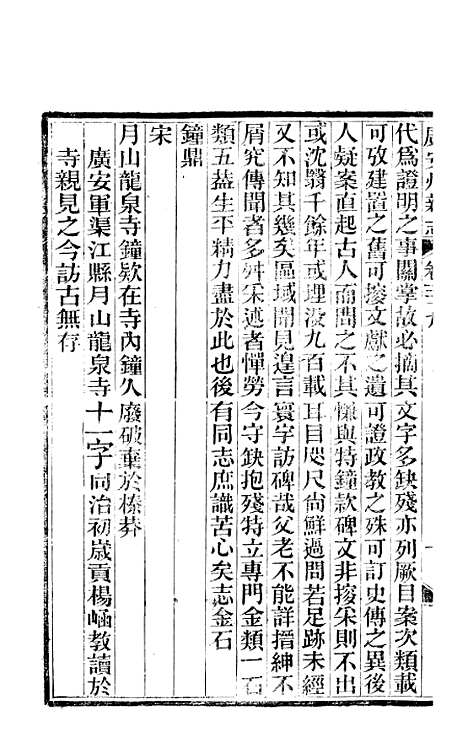 廣安州新志　卷三十九
代爲證明之事關掌故必摘其文字多缺殘亦列厥目案次類載
可攷建置之舊可搜文獻之遺可證政教之殊可訂史傳之異後
人疑案直起古人而問之不其慊與特鐘款碑文非搜采則不出
或沈翳千餘年或埋没九百載耳目咫尺尙鮮過問若足跡未經
又不知其幾矣區域聞見遑言寰宇訪碑哉父老不能詳搢紳不
屑究傳聞者多舛采述者憚勞今守缺抱殘特立專門金類一石
類五葢生平精力盡於此也後有同志庶識苦心矣志金石
鐘鼎
宋
月山龍泉寺鐘欵在寺內鐘久廢破棄於榛莽
廣安軍渠江縣月山龍泉寺十一字同治初歲貢楊崡教讀於
寺親見之今訪古無存